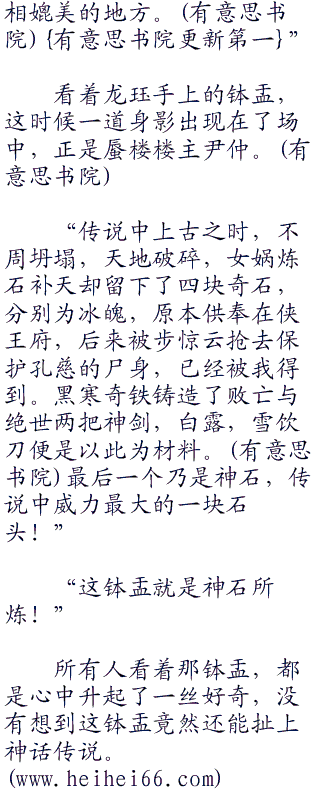 相媲美的地方。(有意思书
院){有意思书院更新第一}”
看着龙珏手上的钵盂，
这时候一道身影出现在了场
中，正是蜃楼楼主尹仲。(有
意思书院)
“传说中上古之时，不
周坍塌，天地破碎，女娲炼
石补天却留下了四块奇石，
分别为冰魄，原本供奉在侠
王府，后来被步惊云抢去保
护孔慈的尸身，已经被我得
到。黑寒奇铁铸造了败亡与
绝世两把神剑，白露，雪饮
刀便是以此为材料。(有意思
书院)最后一个乃是神石，传
说中威力最大的一块石
头！”
“这钵盂就是神石所
炼！”
所有人看着那钵盂，都
是心中升起了一丝好奇，没
有想到这钵盂竟然还能扯上
神话传说。
(www.heihei66.com)